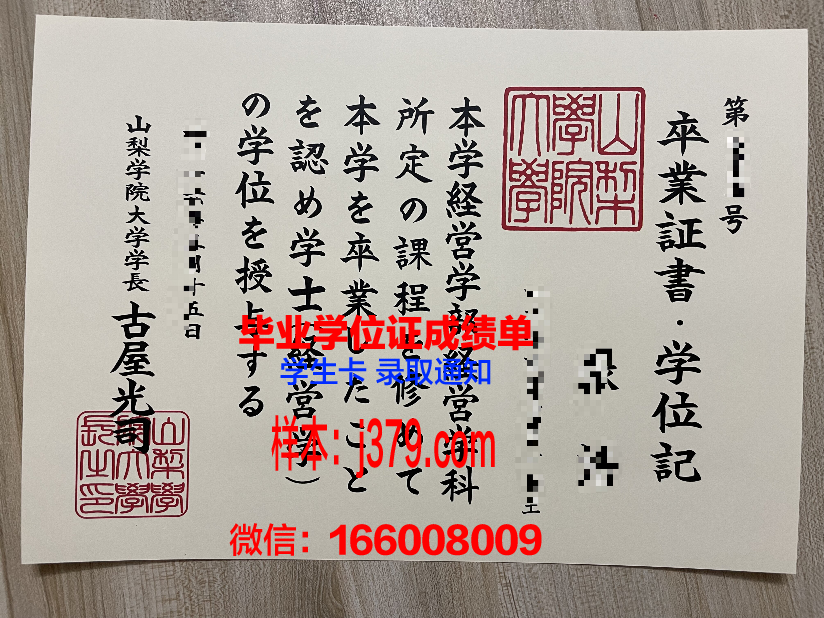 第 号
卒業証書・学位記
山梨
學院
大學
本学経営学部経営学科
所定の課程を修めて
本学を卒業したこと
を認め学士(経営学)
の学位を授与する
十五日
山梨学院大学学長 古屋光司
山梨學
院大學
長之印
毕业学位证成绩单
学生卡 录取通知
样本: j379.com
微信: 166008009